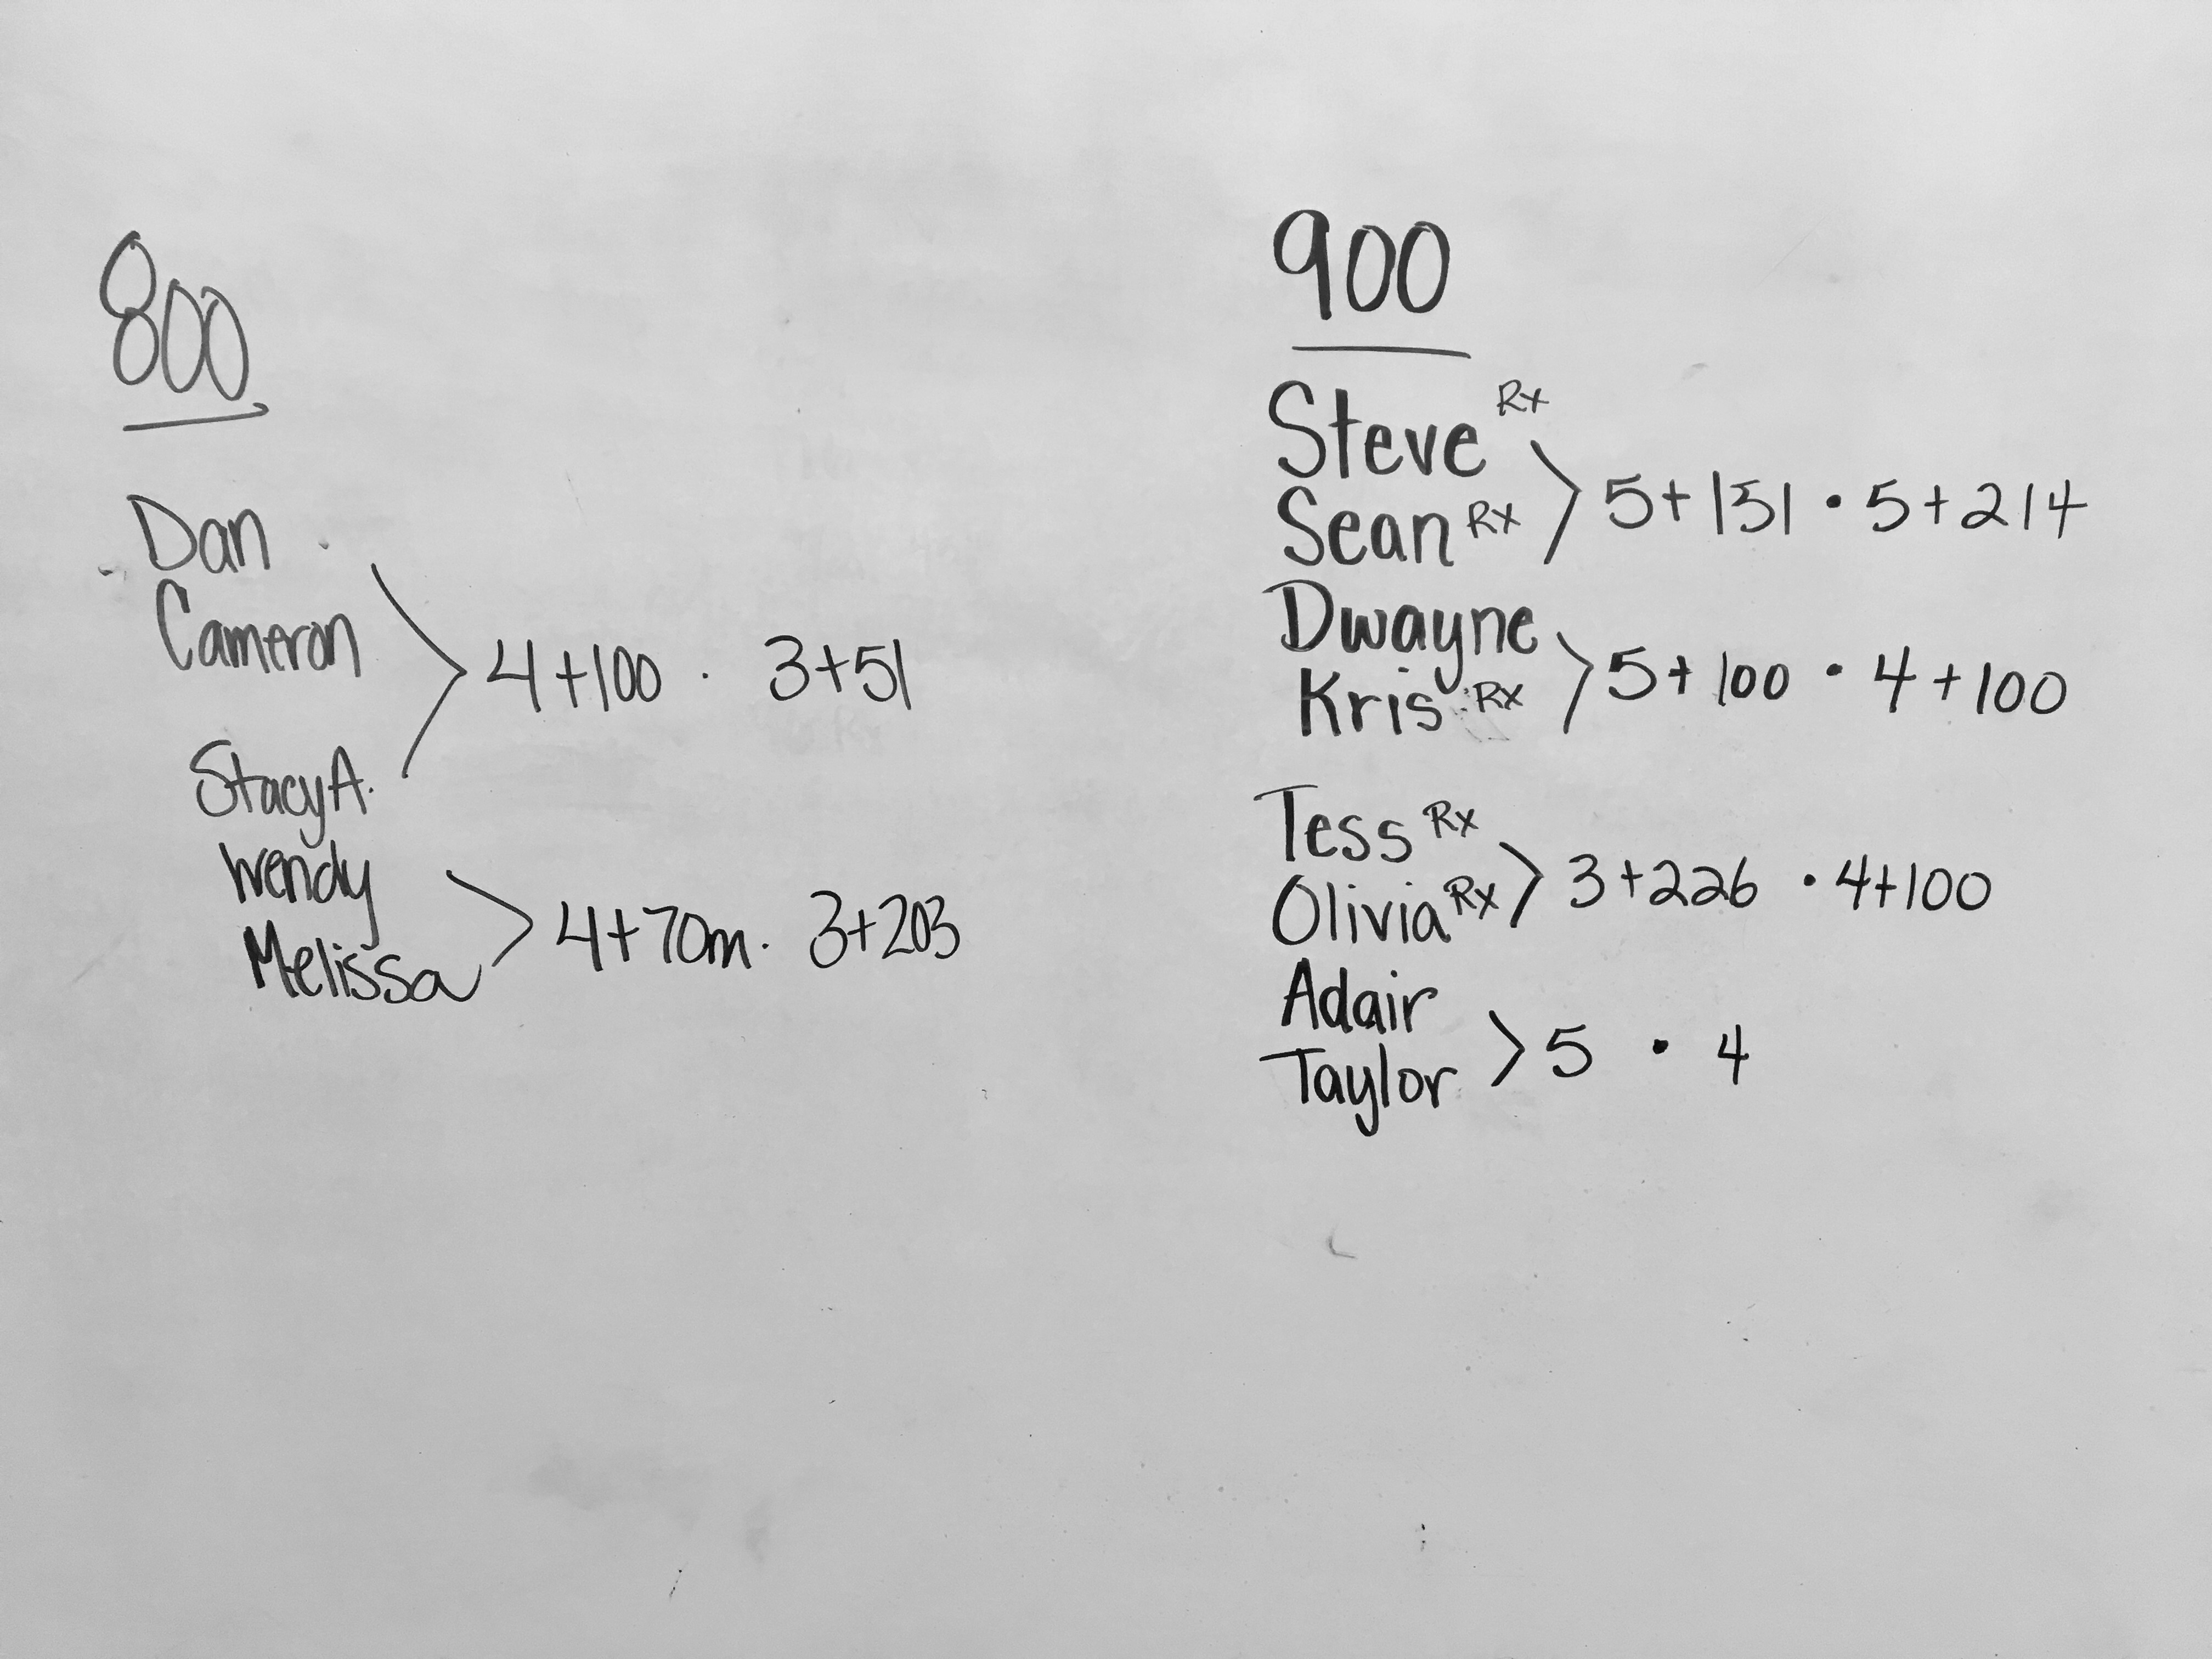 800
Dan
Cameron
4+100 · 3+51
Stacy A.
Wendy
Melissa
4+70m · 3+203
900
Steve Rx
Sean Rx
5+151 · 5+214
Dwayne
Kris Rx
5+100 · 4+100
Tess Rx
Olivia Rx
3+226 · 4+100
Adair
Taylor
5 · 4